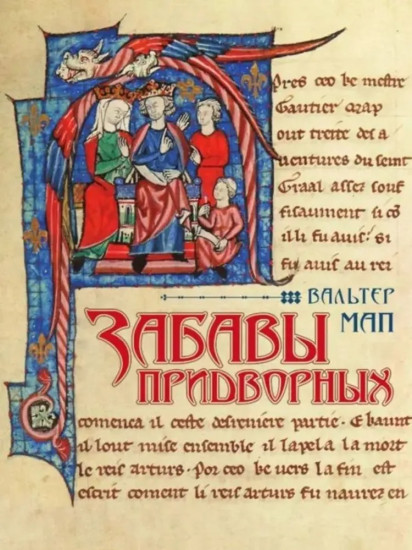 pres ceo ke mestre
Gautier map
out treite des a
uentures du seint
Graal assez souf
fisaument si cõ
il li fu auis. si
fu auis au rei
ВАЛЬТЕР
МАП
ЗАБАВЫ
ПРИДВОРНЫХ
comenca il ceste desreniere partie. E kaunt
il lout mise ensemble il apela la mort
le reis arturs. Por ceo ke uers la fin est
escrit coment li reis arturs fu naurez en